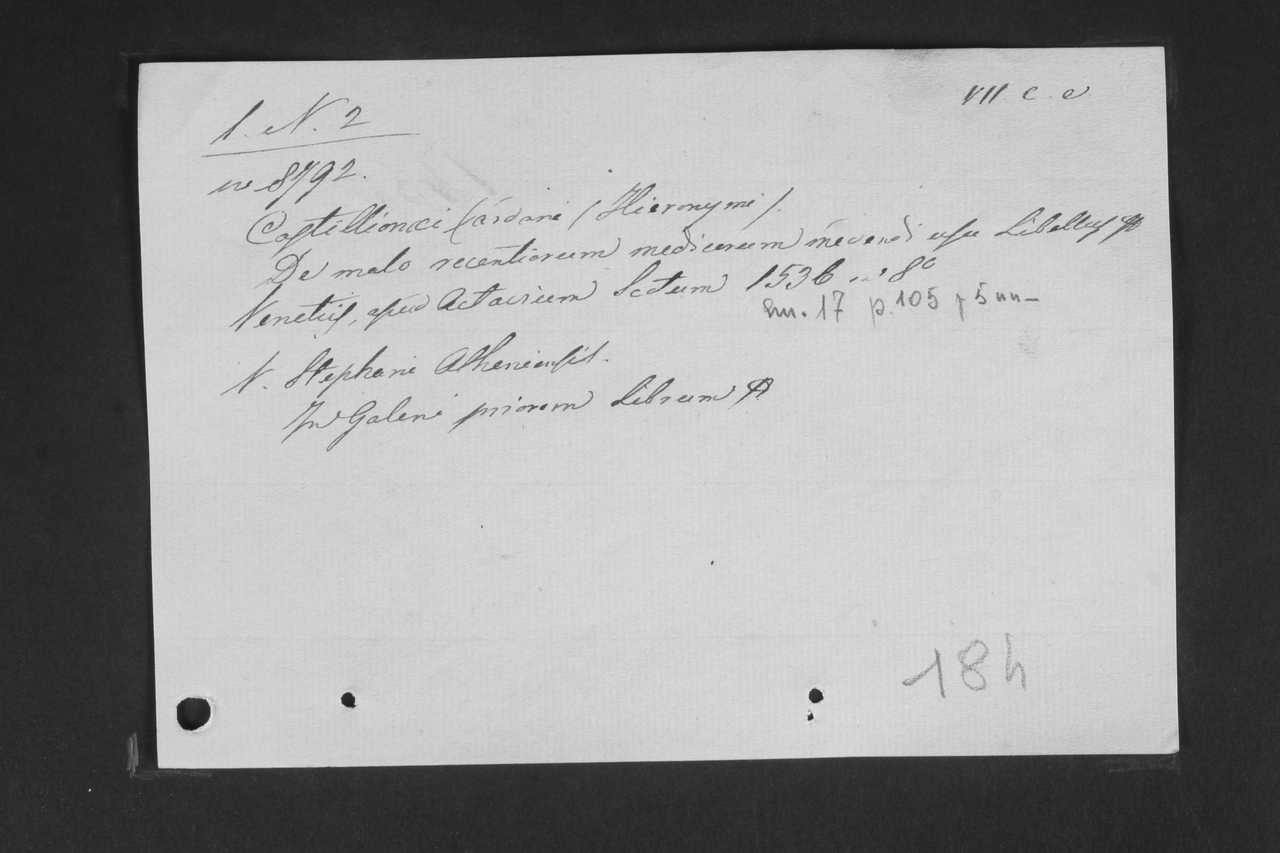 VII c. e
1. N. 2
in 8792.
Castillionaei Cardani / Hieronymi /.
De malo recentiorum medicorum medendi usu Libellus
Venetiis, apud Octavium Scotum 1536 in 8°
17 p. 105 + 5 nn
N. Stephani Atheniensis.
In Galeni priorem Librum
18h